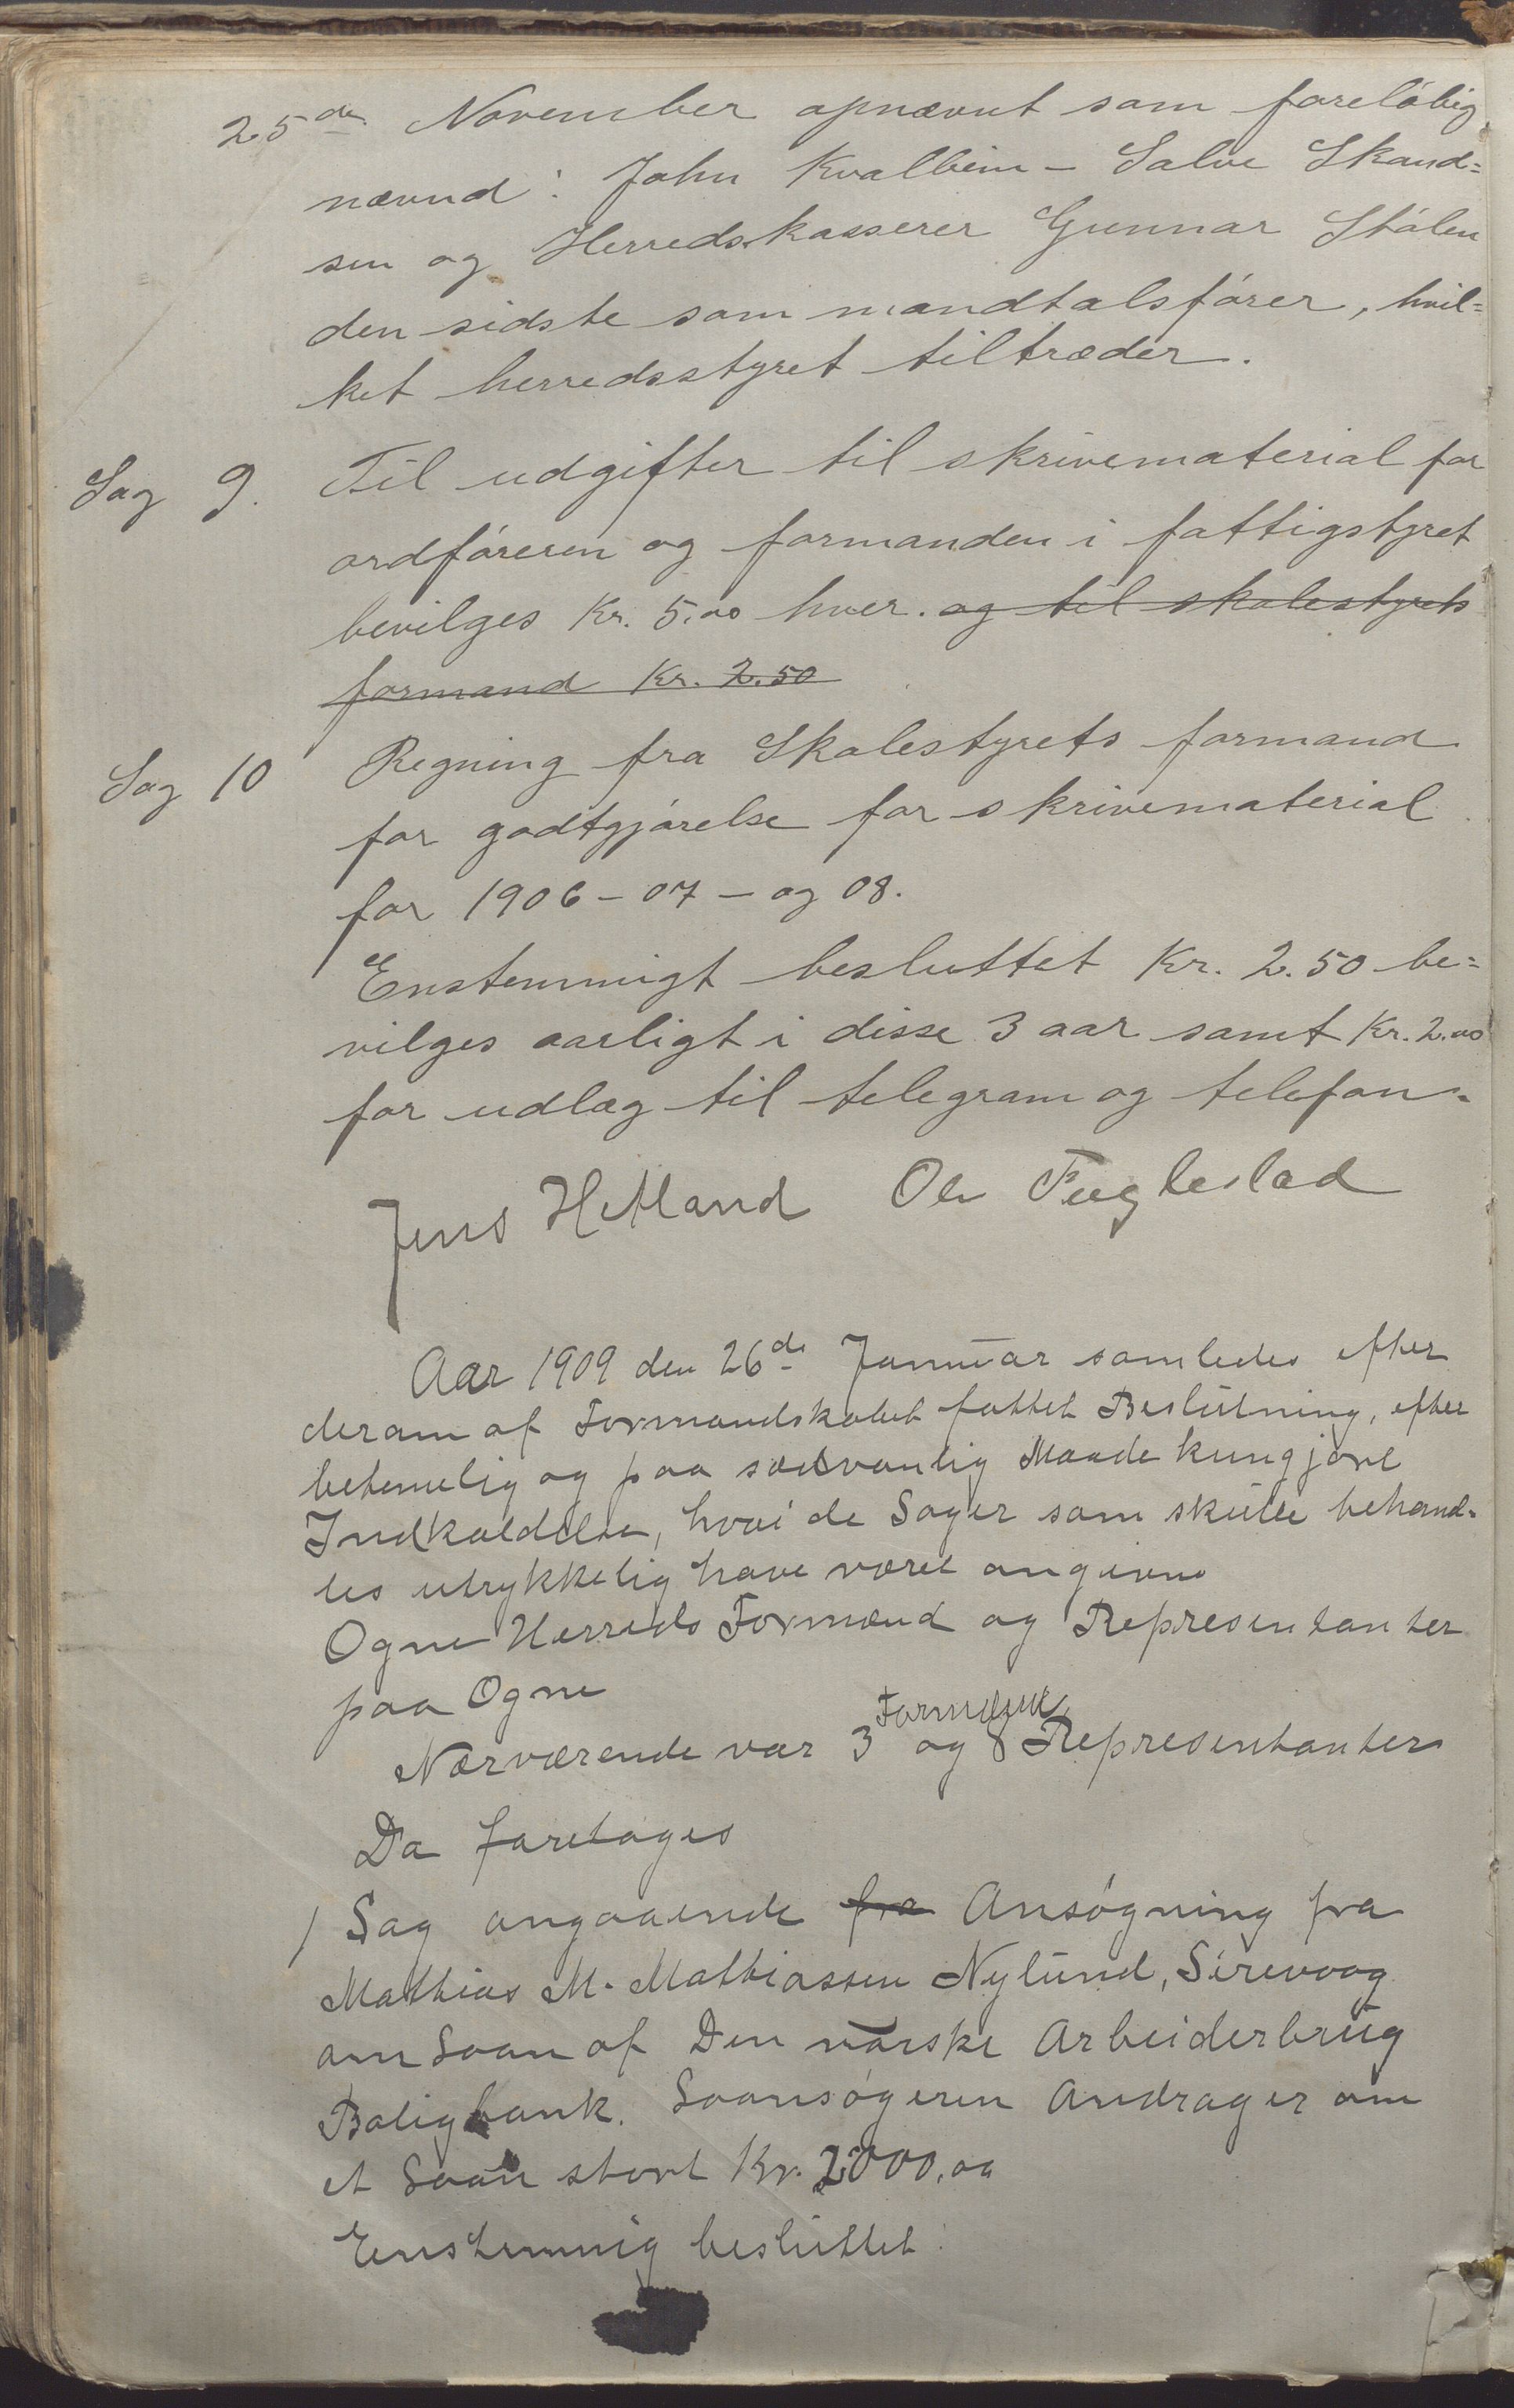 25de November opnævnt som foreløbig
nævnd: John Kvalbein - Salve Skand=
sen og Herredskasserer Gunnar Stølen
den sidste som mandtalsfører, hvil=
ket herredsstyret tiltræder.
Sag 9. Til udgifter til skrivematerial for
ordføreren og formanden i fattigstyret
bevilges Kr. 5.00 hver. og til skolestyrets
formand Kr. 2.50
Sag 10 Regning fra Skolestyrets formand
for godtgjørelse for skrivematerial
for 1906-07- og 08.
Enstemmigt besluttet Kr. 2.50 be=
vilges aarligt i disse 3 aar samt Kr. 2.00
for udlæg til telegram og telefon.
Jens Hetland Ole Fuglestad
Aar 1909 den 26de Januar samledes efter
derom af Formandskabet fattet Beslutning, efter
betimelig og paa sædvanlig Maade kungjort
Indkaldelse, hvori de Sager som skulle behand=
les utrykkelig have været angivne
Ogne Herreds Formænd og Representanter
paa Ogne
Nærværende var 3 Formænd og 8 Representanter
Da foretages
1 Sag angaaende fra Ansøgning fra
Mathias M. Mathiassen Nylund, Sirevaag
om Laan af Den norske Arbeiderbrug
Boligbank. Laansøgeren Andrager om
et Laan stort Kr. 2000,00
Enstemmig besluttet: